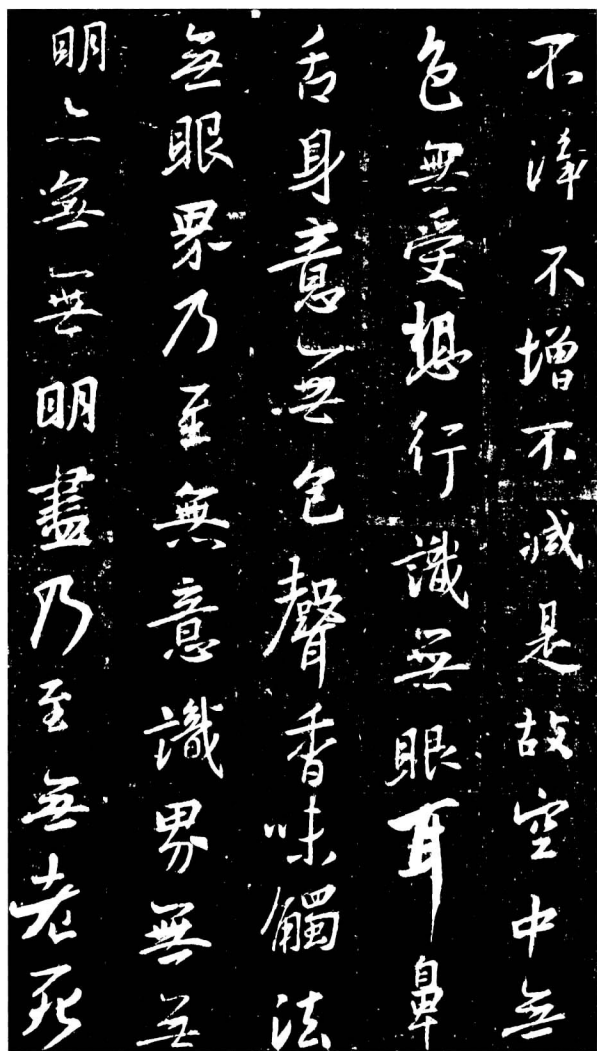 不淨不增不減是故空中無
色無受想行識無眼耳鼻
舌身意無色聲香味觸法
無眼界乃至無意識界無無
明亦無無明盡乃至無老死